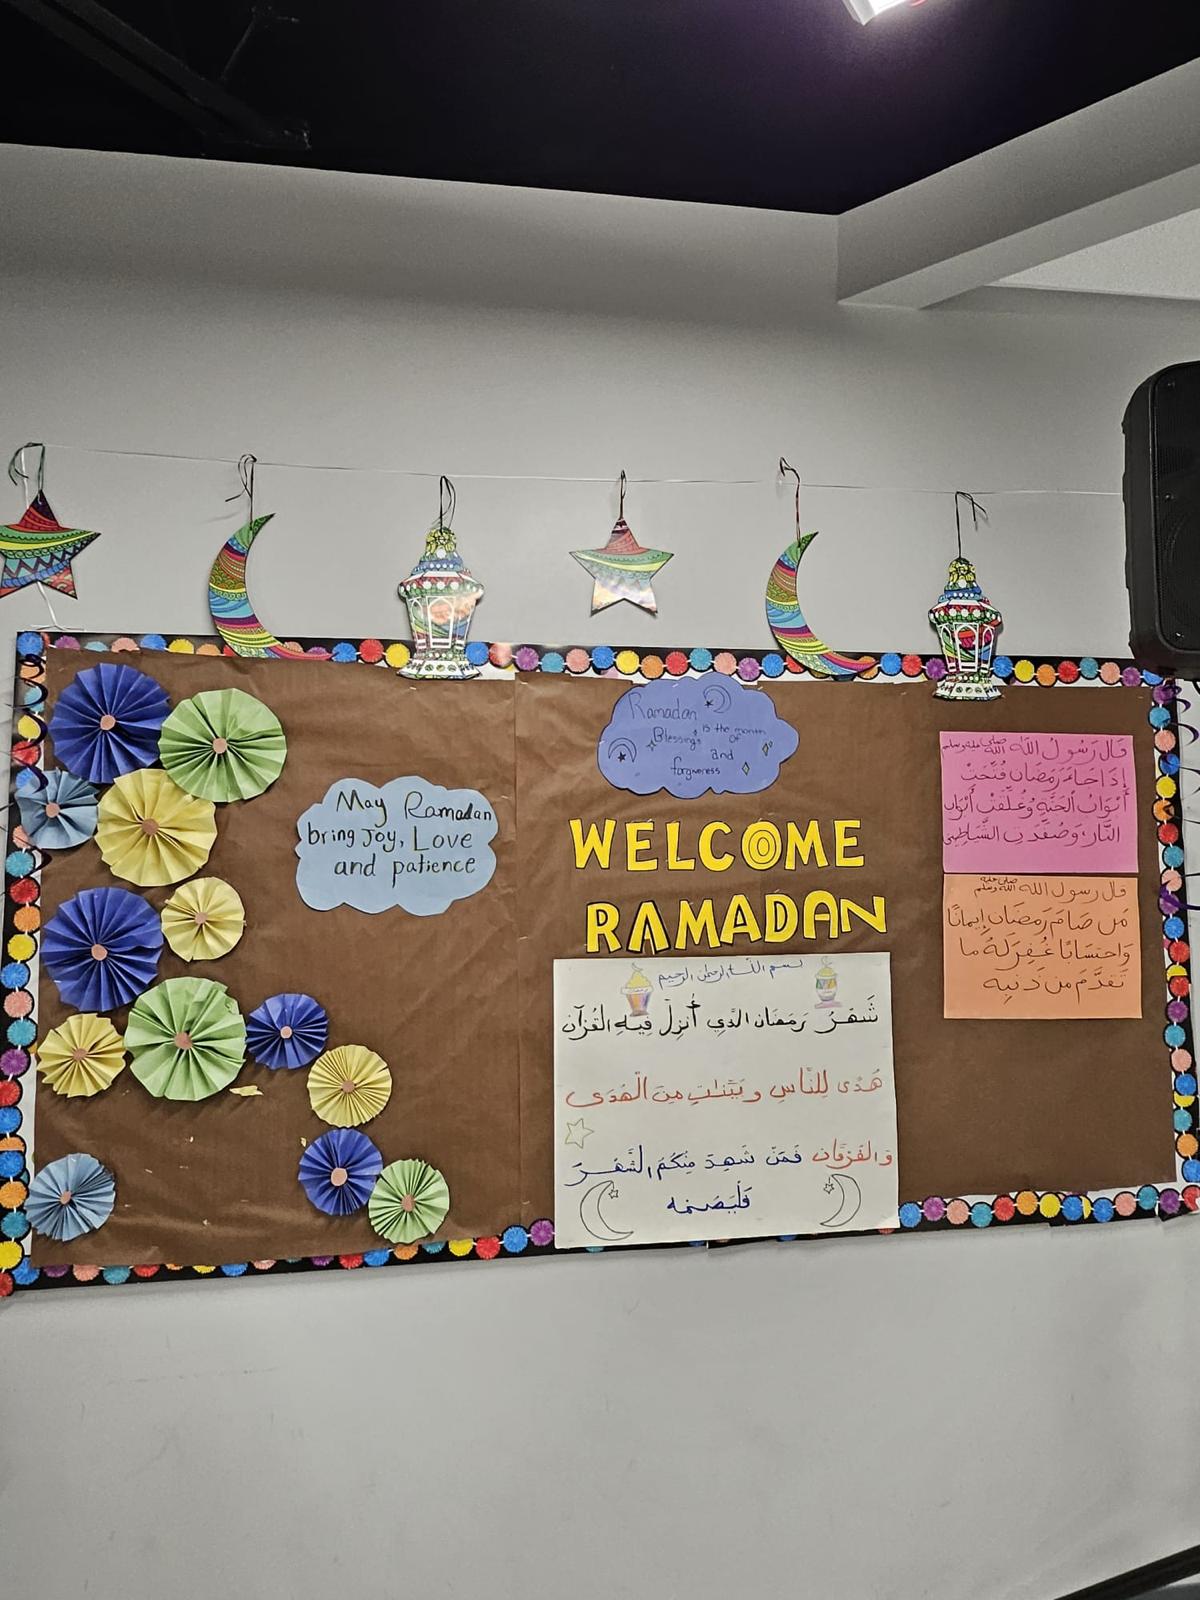 Ramadan
is the month
Blessings of
and
forgiveness
May Ramadan
bring Joy, Love
and patience
WELCOME
RAMADAN
بسم الله الرحمن الرحيم
شَهْرُ رَمَضَان الَّذِي أُنزِلَ فِيهِ القُرْآن
هُدًى لِلنَّاسِ وبَيِّنَاتٍ مِنَ الْهُدَى
وَالفُرْقَانِ فَمَنْ شَهِدَ مِنْكُمُ الشَّهْرَ
فَلْيَصُمْهُ
قَالَ رَسُولُ اللَّه صلى الله عليه وسلم
إِذَا جَاءَ رَمَضَان فُتِّحَتْ
أَبْوَابُ الْجَنَّةِ وَغُلِّقَتْ أَبْوَابُ
النَّارِ، وَصُفِّدَتِ الشَّيَاطِينُ
قال رسول الله صلى الله عليه وسلم
مَن صَامَ رَمَضَانَ إِيمَانًا
وَاحتِسَابًا غُفِرَ لَهُ ما
تَقَدَّمَ مِن ذَنبِهِ